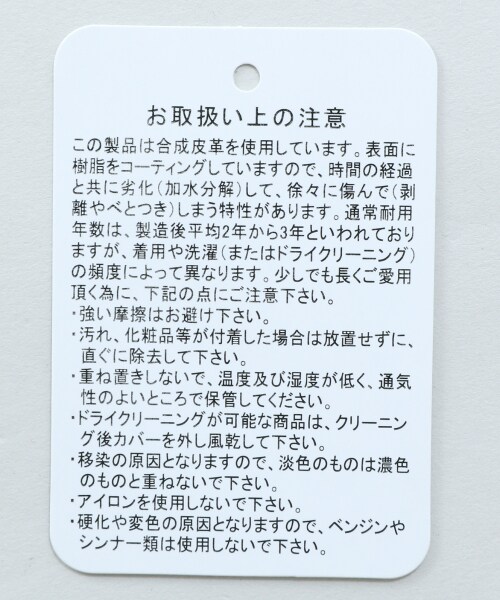 お取扱い上の注意
この製品は合成皮革を使用しています。表面に
樹脂をコーティングしていますので、時間の経過
と共に劣化(加水分解)して、徐々に傷んで(剥
離やべとつき)しまう特性があります。通常耐用
年数は、製造後平均2年から3年といわれており
ますが、着用や洗濯(またはドライクリーニング)
の頻度によって異なります。少しでも長くご愛用
頂く為に、下記の点にご注意下さい。
・強い摩擦はお避け下さい。
・汚れ、化粧品等が付着した場合は放置せずに、
直ぐに除去して下さい。
・重ね置きしないで、温度及び湿度が低く、通気
性のよいところで保管してください。
・ドライクリーニングが可能な商品は、クリーニン
グ後カバーを外し風乾して下さい。
・移染の原因となりますので、淡色のものは濃色
のものと重ねないで下さい。
・アイロンを使用しないで下さい。
・硬化や変色の原因となりますので、ベンジンや
シンナー類は使用しないで下さい。